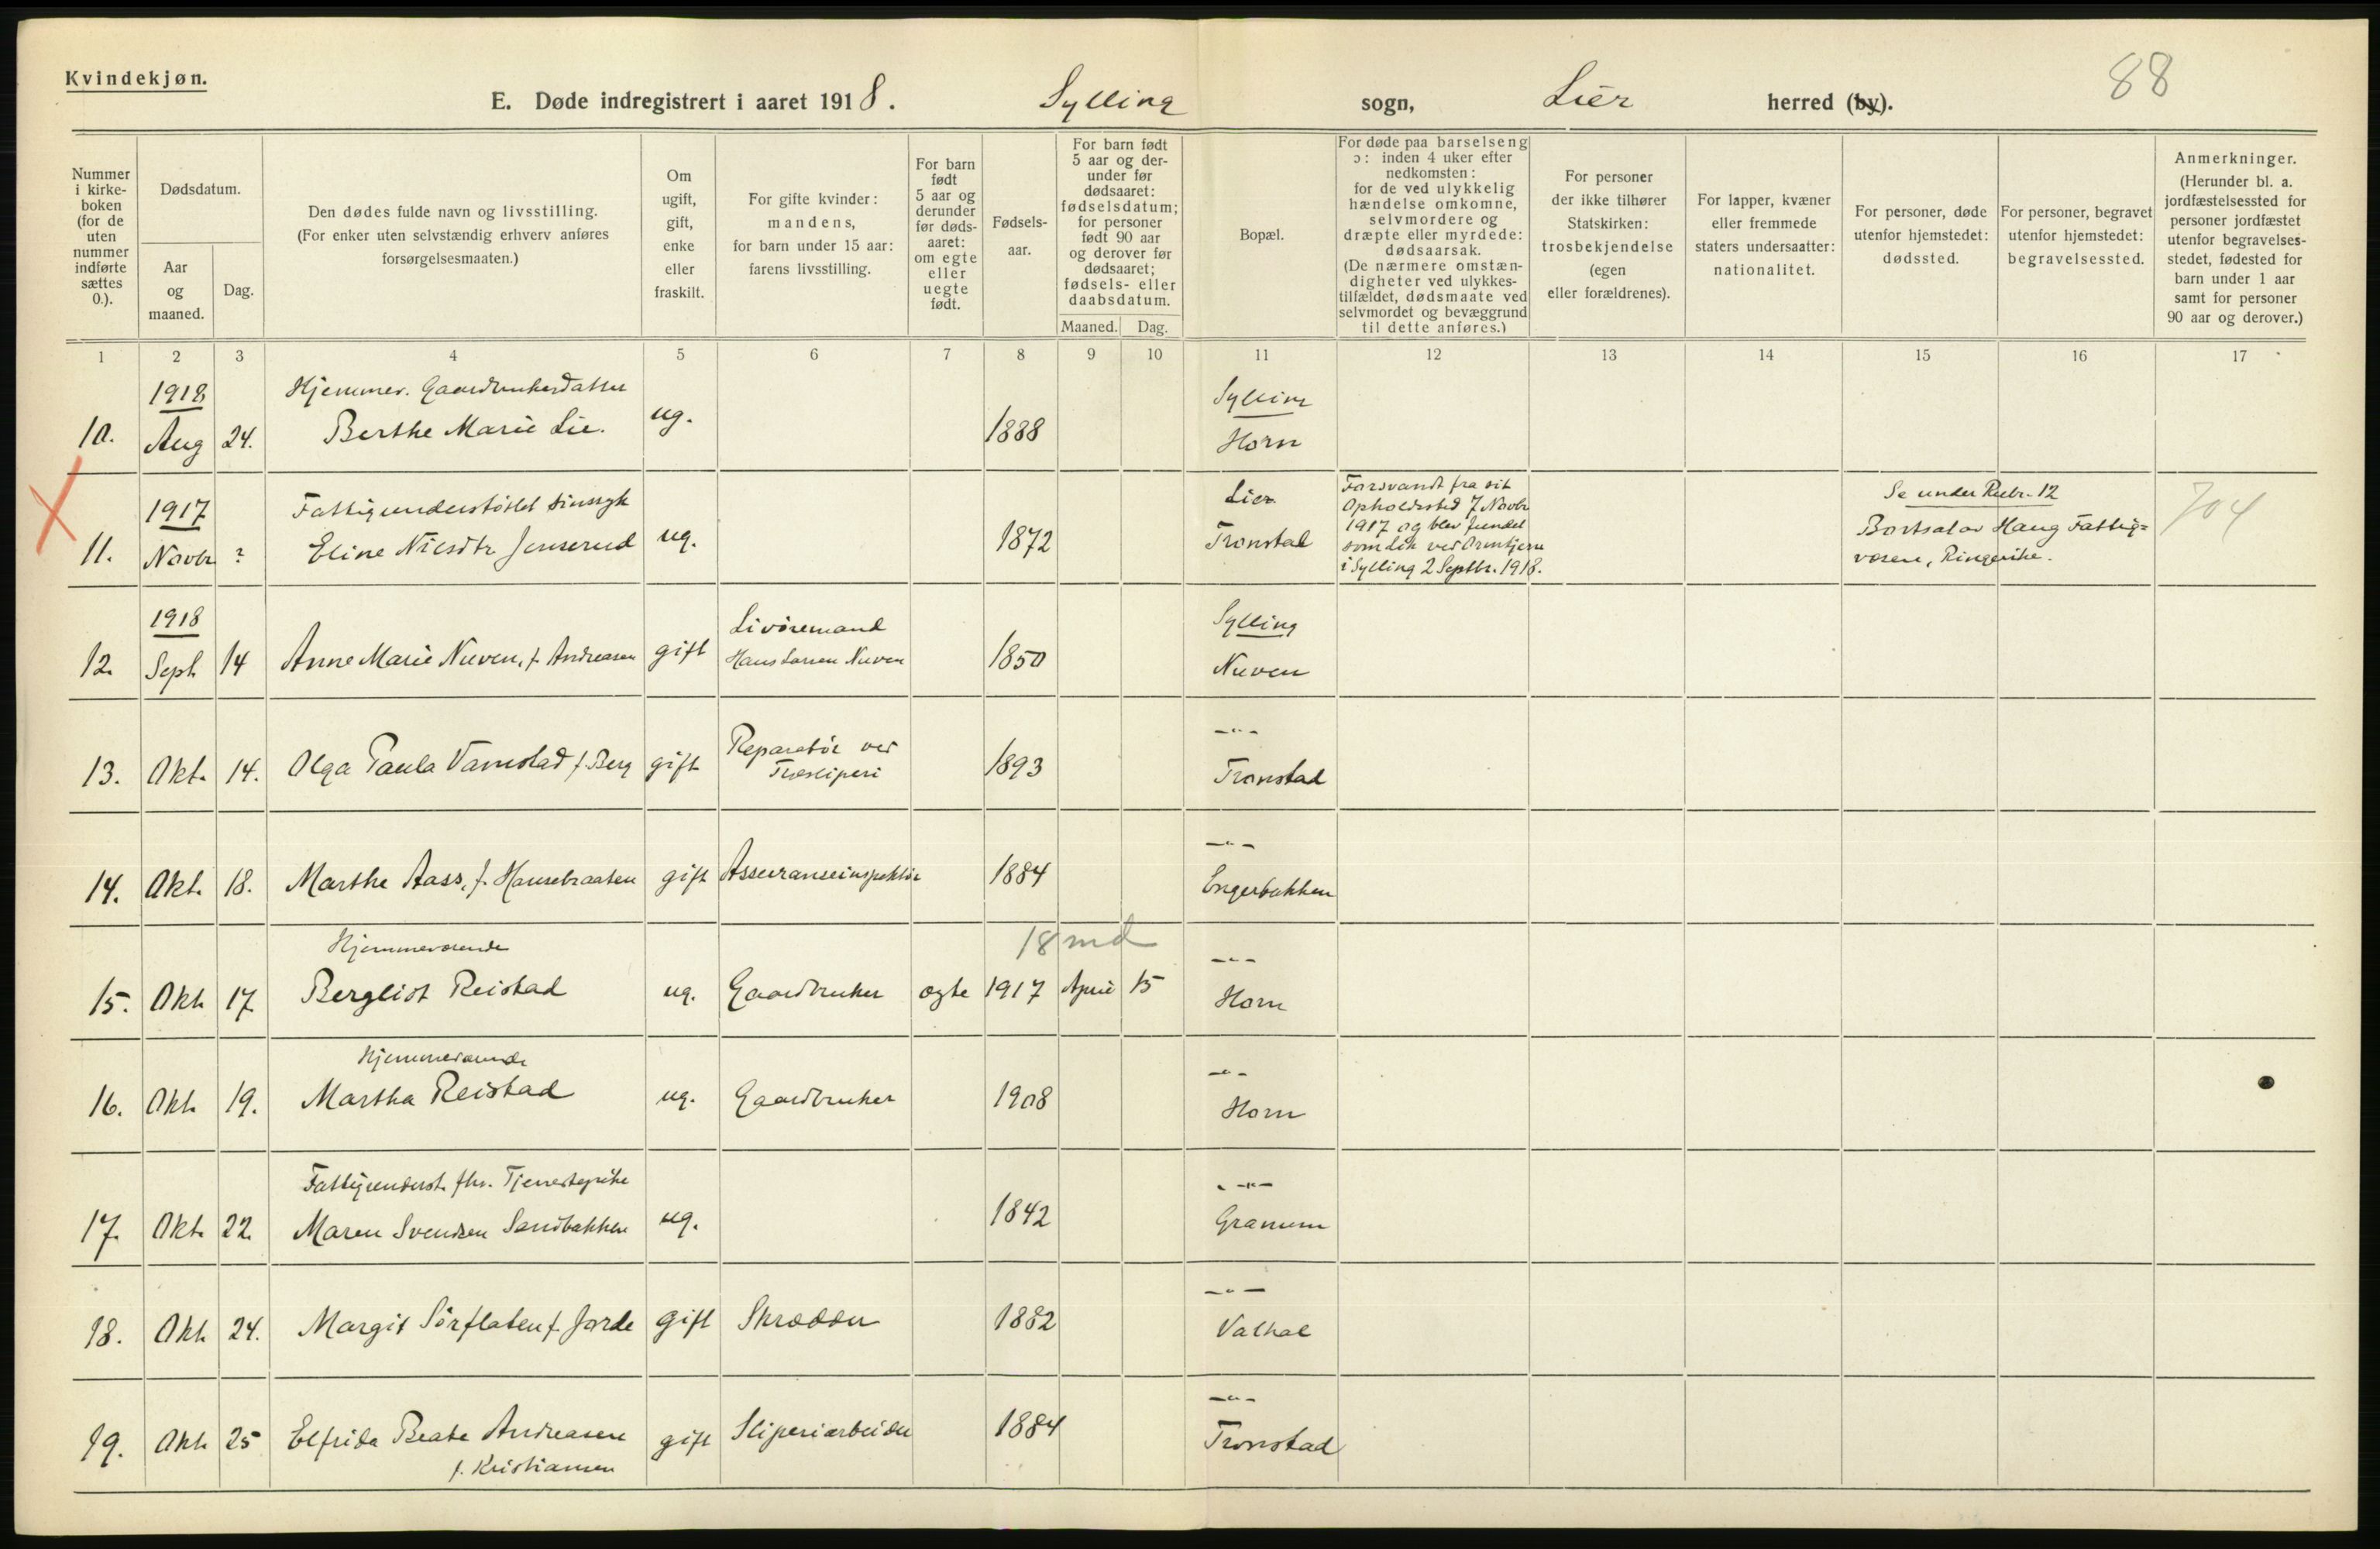 Kvindekjøn.
E. Døde indregistrert i aaret 1918. Sylling sogn, Lier herred (by).
88
Nummer i kirkeboken (for de uten nummer indførte sættes 0.).
Dødsdatum.
Aar og maaned.
Dag.
Den dødes fulde navn og livsstilling. (For enker uten selvstændig erhverv anføres forsørgelsesmaaten.)
Om ugift, gift, enke eller fraskilt.
For gifte kvinder: mandens, for barn under 15 aar: farens livsstilling.
For barn født 5 aar og derunder før dødsaaret: om egte eller uegte født.
Fødselsaar.
For barn født 5 aar og derunder før dødsaaret: fødselsdatum; for personer født 90 aar og derover før dødsaaret; fødsels- eller daabsdatum.
Maaned. Dag.
Bopæl.
For døde paa barselseng ɔ: inden 4 uker efter nedkomsten: for de ved ulykkelig hændelse omkomne, selvmordere og dræpte eller myrdede: dødsaarsak. (De nærmere omstændigheter ved ulykkestilfældet, dødsmaate ved selvmordet og bevæggrund til dette anføres.)
For personer der ikke tilhører Statskirken: trosbekjendelse (egen eller forældrenes).
For lapper, kvæner eller fremmede staters undersaatter: nationalitet.
For personer, døde utenfor hjemstedet: dødssted.
For personer, begravet utenfor hjemstedet: begravelsessted.
Anmerkninger. (Herunder bl. a. jordfæstelsessted for personer jordfæstet utenfor begravelsesstedet, fødested for barn under 1 aar samt for personer 90 aar og derover.)
1 2 3 4 5 6 7 8 9 10 11 12 13 14 15 16 17
1918 Hjemmev. Gaardbrukerdatter Sylling
10. Aug 24. Berthe Marie Lie. ug. 1888 Horn
1917 Fattigunderstøttet sinssyk Lier
11. Novbr ? Eline Nilsdtr Jenserud ug. 1872 Tronstad
Forsvandt fra sit
Opholdssted 7 Novbr
1917 og blev fundet
som Lik ved
i Sylling 2 Septbr. 1918.
Se under Rubr. 12
Bortsat av Haug Fattig=
væsen, Ringerike.
704
1918 Livøremand Sylling
12. Sept 14 Anne Marie Nuven, f. Andreasen gift Hans Larsen Nuven 1850 Nuven
13. Okt. 14. Olga Paula Vamstad f. Berg gift Reparatør ved Træsliperi 1893 -"- Tronstad
14. Okt. 18. Marthe Aass, f. Hansebraaten gift Assuranseinspektør 1884 -"- Engerbakken
Hjemmeværende 18 md
15. Okt. 17 Bergliot Reistad ug. Gaardbruker egte 1917 April 15 -"- Horn
Hjemmeværende
16. Okt. 19. Martha Reistad ug. Gaardbruker 1908 -"- Horn
Fattigunderst. fhv. Tjenestepike
17. Okt. 22. Maren Svendsen Sandbakken ug. 1842 -"- Granum
18. Okt. 24. Margit Sørflaten f. Jorde gift Skrædder 1882 -"- Valhal
19. Okt. 25 Elfrida Beate Andreasen gift Sliperiarbeider 1884 -"- Tronstad
f. Kristiansen